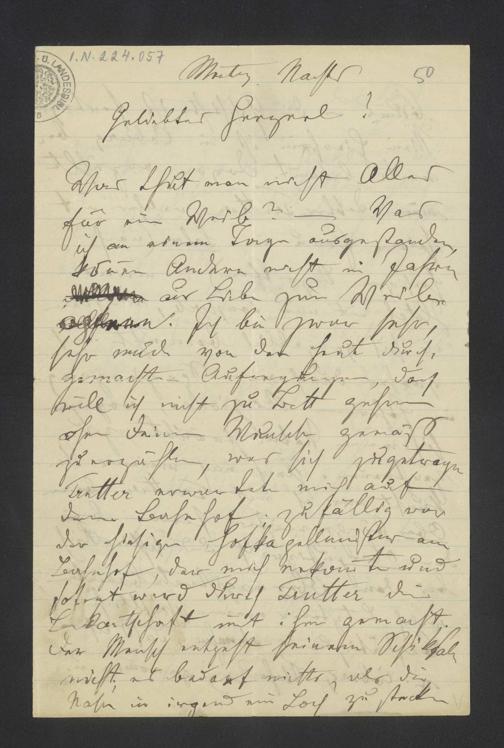 I.N. 224.057
U. LANDESBIBL
Montag Nachts 50
Geliebtes Herzerl!
Was thut man nicht Alles
für ein Weib? — Was
ich an einem Tage ausgestanden,
können Andere nicht in Jahren
aus Liebe zum Weibe
Ich bin zwar sehr,
sehr müde von den heut durch,
gemachten Aufregungen, doch
will ich nicht zu Bett gehen
ohne Deinem Wunsche gemäß
zu erzählen, was sich zugetragen
Trutter erwartete mich auf
dem Bahnhof, zufällig war
der hiesige Hofkapellmeister am
Bahnhof, der mich erkannte und
sofort wird durch Trutter die
Bekantschaft mit ihm gemacht.
Der Mensch entgeht seinem Schiksale
nicht, es bedarf nichts, als die
Nase in irgend ein Loch zu stecken